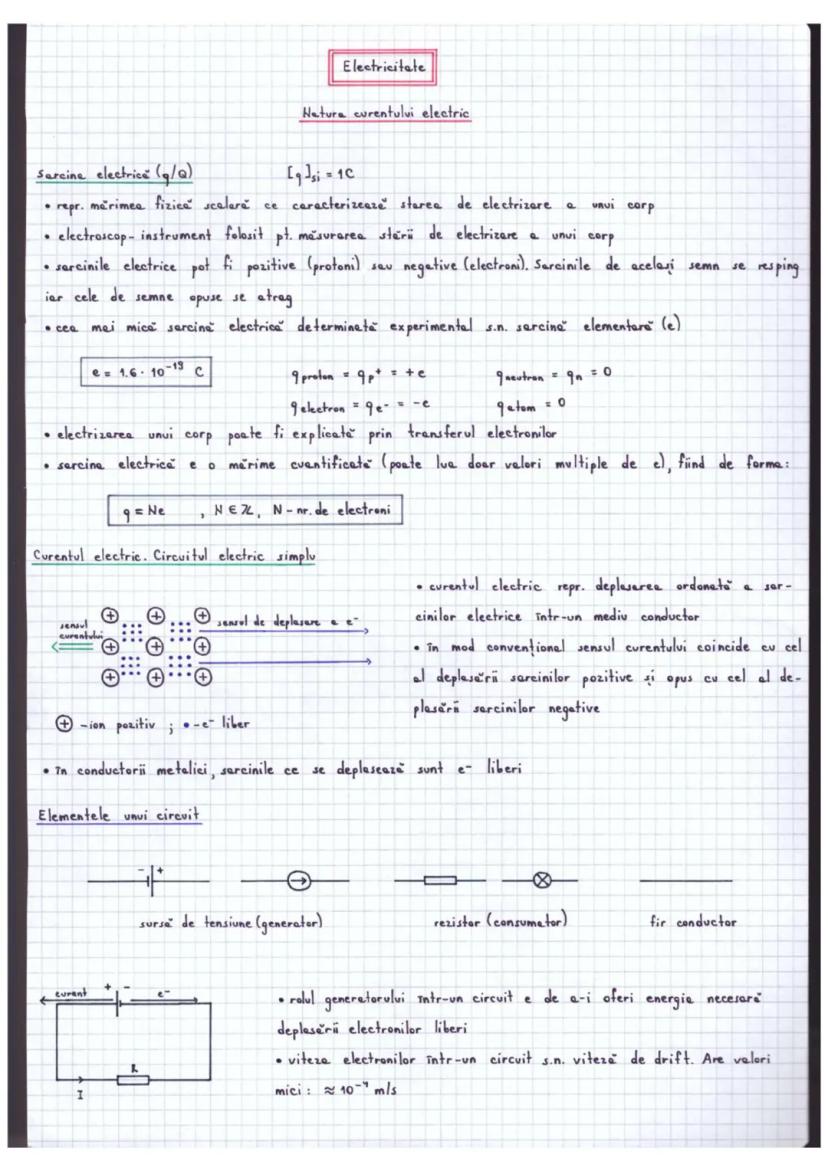 Electricitate
Natura curentului electric
Sarcina electrică (q/Q) [q]si = 1C
• repr. mărimea fizică scalară ce caracterizează starea de electrizare a unui corp
• electroscop - instrument folosit pt. măsurarea stării de electrizare a unui corp
• sarcinile electrice pot fi pozitive (protoni) sau negative (electroni). Sarcinile de același semn se resping
iar cele de semne opuse se atrag
• cea mai mică sarcină electrică determinată experimental s.n. sarcină elementară (e)
e = 1.6 · 10⁻¹⁹ C q proton = qp⁺ = +e q neutron = qn = 0
q electron = qe⁻ = -e q atom = 0
• electrizarea unui corp poate fi explicată prin transferul electronilor
• sarcina electrică e o mărime cuantificată (poate lua doar valori multiple de e), fiind de forma:
q = Ne , N ∈ ℤ, N - nr. de electroni
Curentul electric. Circuitul electric simplu
• curentul electric repr. deplasarea ordonată a sar-
cinilor electrice într-un mediu conductor
• în mod convențional sensul curentului coincide cu cel
al deplasării sarcinilor pozitive și opus cu cel al de-
plasării sarcinilor negative
sensul
curentului
sensul de deplasare a e⁻
⊕ - ion pozitiv ; • - e⁻ liber
• în conductorii metalici, sarcinile ce se deplasează sunt e⁻ liberi
Elementele unui circuit
- +
sursă de tensiune (generator) rezistor (consumator) fir conductor
curent + - e⁻
R
I
• rolul generatorului într-un circuit e de a-i oferi energia necesară
deplasării electronilor liberi
• viteza electronilor într-un circuit s.n. viteză de drift. Are valori
mici : ≈ 10⁻⁴ m/s